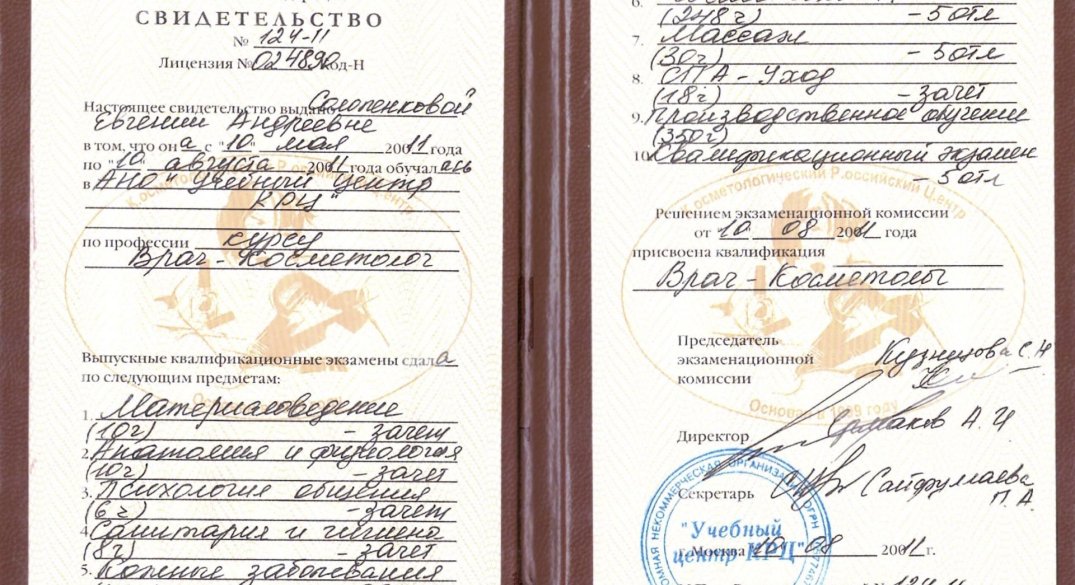 СВИДЕТЕЛЬСТВО
№ 124-11
Лицензия № 024890 Код-Н
Настоящее свидетельство выдано Солопенковой
Евгении Андреевне
в том, что он а с "10" мая 2011 года
по "10" августа 2011 года обучалась
в АНО "Учебный Центр
КРЦ"
по профессии курсу
Врач-Косметолог
Выпускные квалификационные экзамены сдала
по следующим предметам:
1. Материаловедение
(10г) - зачет
2. Анатомия и физиология
(10г) - зачет
3. Психология общения
(6г) - зачет
4. Санитария и гигиена
(8г) - зачет
5. Кожные заболевания
6.
(248г) - 5 отл
7. Массаж
(30г) - 5 отл
8. СПА-Уход
(18г) - зачет
9. Производственное обучение
(350г)
10. Квалификационный экзамен
- 5 отл
Решением экзаменационной комиссии
от 10 08 2011 года
присвоена квалификация
Врач-Косметолог
Председатель
экзаменационной
комиссии
С.Н
Директор Ермаков А.И
Секретарь Сайфулаева
П.А.
г. Москва 10 08 2011 г.
124-11
Косметологический Российский Центр
Основан в 1989 году
Косметологический Российский Центр
"Учебный
центр КРЦ"